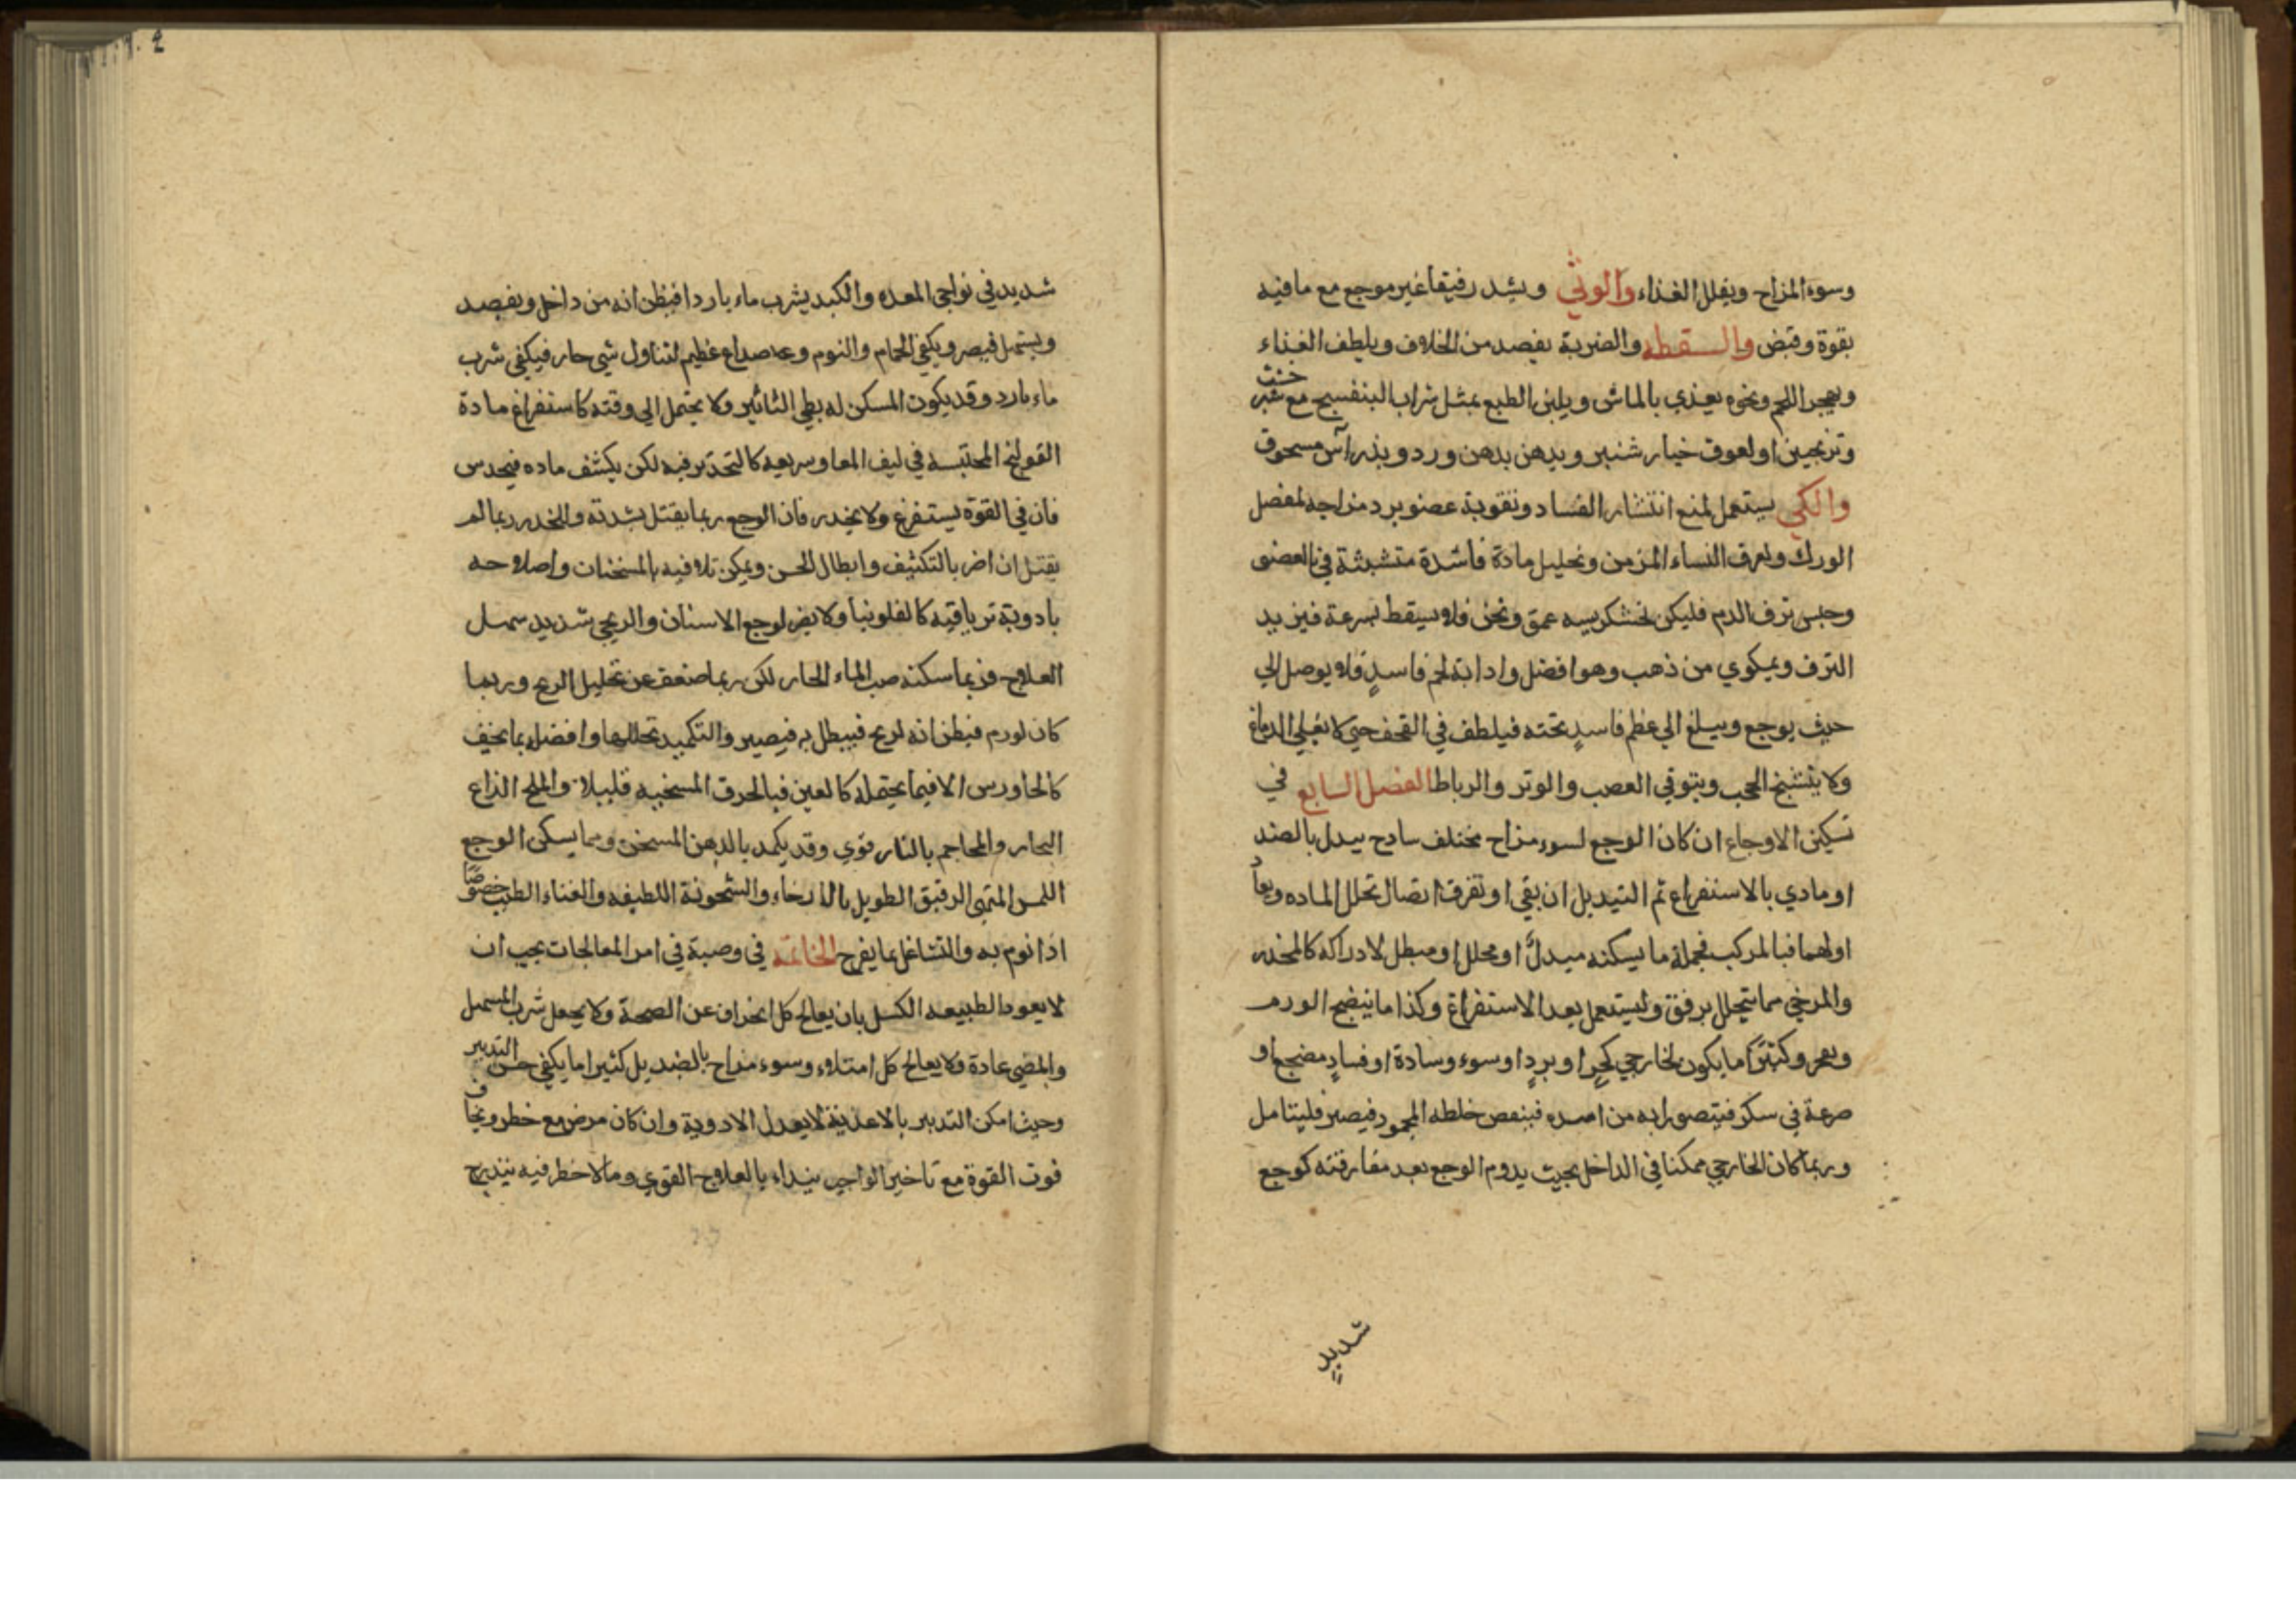 وسوء المزاج ويقلل الغذاء والوثي ويشد رفيقا غير موجع مع ما فيه
بقوة وقبض والسقطه والضربة يفصد من الخلاف ويلطف الغذاء
ويهجر اللحم ونحوه يغذي بالماش ويلين الطبع بمثل شراب البنفسج مع
وترنجبين او لعوق خيار شنبر ويدهن بدهن ورد ويذر آس مسحوق
والكي يستعمل لمنع انتشار الفساد وتقوية عضو برد مزاجه لمفصل
الورك ولعرف النساء المزمن وتحليل مادة فاسدة متشبثة في العضو
وحبس نزف الدم فليكن لخشكريسه عمق ونخن فلا يسقط بسرعة فيزيد
النزف ويكوي من ذهب وهو افضل واذابة لحم فاسدٍ فلا يوصل الي
حيث يوجع ويبلغ الي عظم فاسدٍ تحته فيلطف في القحف حتي لا يغلي الدماغ
ولا يتشنج الحجب ويتوقي العصب والوتر والرباط الفصل السابع في
تسكين الاوجاع ان كان الوجع لسوء مزاج مختلف سادج يبدل بالضد
او مادي بالاستفراغ ثم التبديل ان بقي او تفرق اتصال تحلل الماده
او لهما فبالمركب فجملة ما يسكنه مبدل او محلل او مبطل لادراكه كالمخدر
والمرخي مما يتحلل برفق وليستعمل بعد الاستفراغ وكذا ما ينضج الورم
وكثيرًا ما يكون لخارجي كحرٍ او بردٍ او سوء وسادة او فسادٍ مضجع او
صرعة في سكر فيتصور انه من فينقص خلطه المحمود فيصير فليتامل
وربما كان الخارجي ممكنا في الداخل بحيث يدوم الوجع بعد مفارقته كوجع
شديد
شديد في نواحي المعده والكبد يشرب ماء باردا فيظن انه من داخل ويفصد
ويستهل فيصر ويكفي الحمام والنوم وعا صداع عظيم لتناول شي حار فيكفي شرب
ماء بارد وقد يكون المسكن له بطي التاثير ولا يحتمل الي وقته كاستفراغ مادة
القولنج المحتبسه في ليف المعا وسريعه كالتخدير فيه لكن يكشف ماده
فان في القوة يستفرغ ولا يخدر فان الوجع ربما يقتل بشدته والمخدر ربما لم
يقتل ان اضر بالتكثيف وابطال الحس ويمكن تلافيه بالمسخنات واصلاحه
بادوية ترياقية كالفلونيا ولا يضر لوجع الاسنان والريحي شديد سهل
العلاج فربما سكنه صب الماء الحار لكن ربما ضعف عن تحليل الريح وربما
كان لورم فيظن انه لريح فيبطل به فيصير والتكميد تحللها وافضله بما يخف
كالجاورس الا فيما يحتمله كالعين فبالخرق المسخنه قليلا والملح الذاع
البخار والمحاجم بالنار قوي وقد يكمد بالدهن المسخن ومما يسكن الوجع
اللمس الرقيق الطويل بالارخاء والشحونة اللطيفه والغناء الطيب خصوصًا
اذا نوم به والتشاغل بما يفرح الخاتمة في وصية في امر المعالجات يجب ان
لا يعود الطبيعه الكسل بان يعالج كل انحراف عن الصحة ولا يجعل شرب المسهل
والمضي عادة ولا يعالج كل امتلاء وسوء مزاج بالضد بل كثيرا ما يكفي حسن التدبير
وحيث امكن التدبير بالاغذية لا يعدل الادوية وان كان مرض مع خطر ويخاف
فوت القوة مع تاخير الواجب يبداء بالعلاج القوي وما لا خطر فيه يتدرج